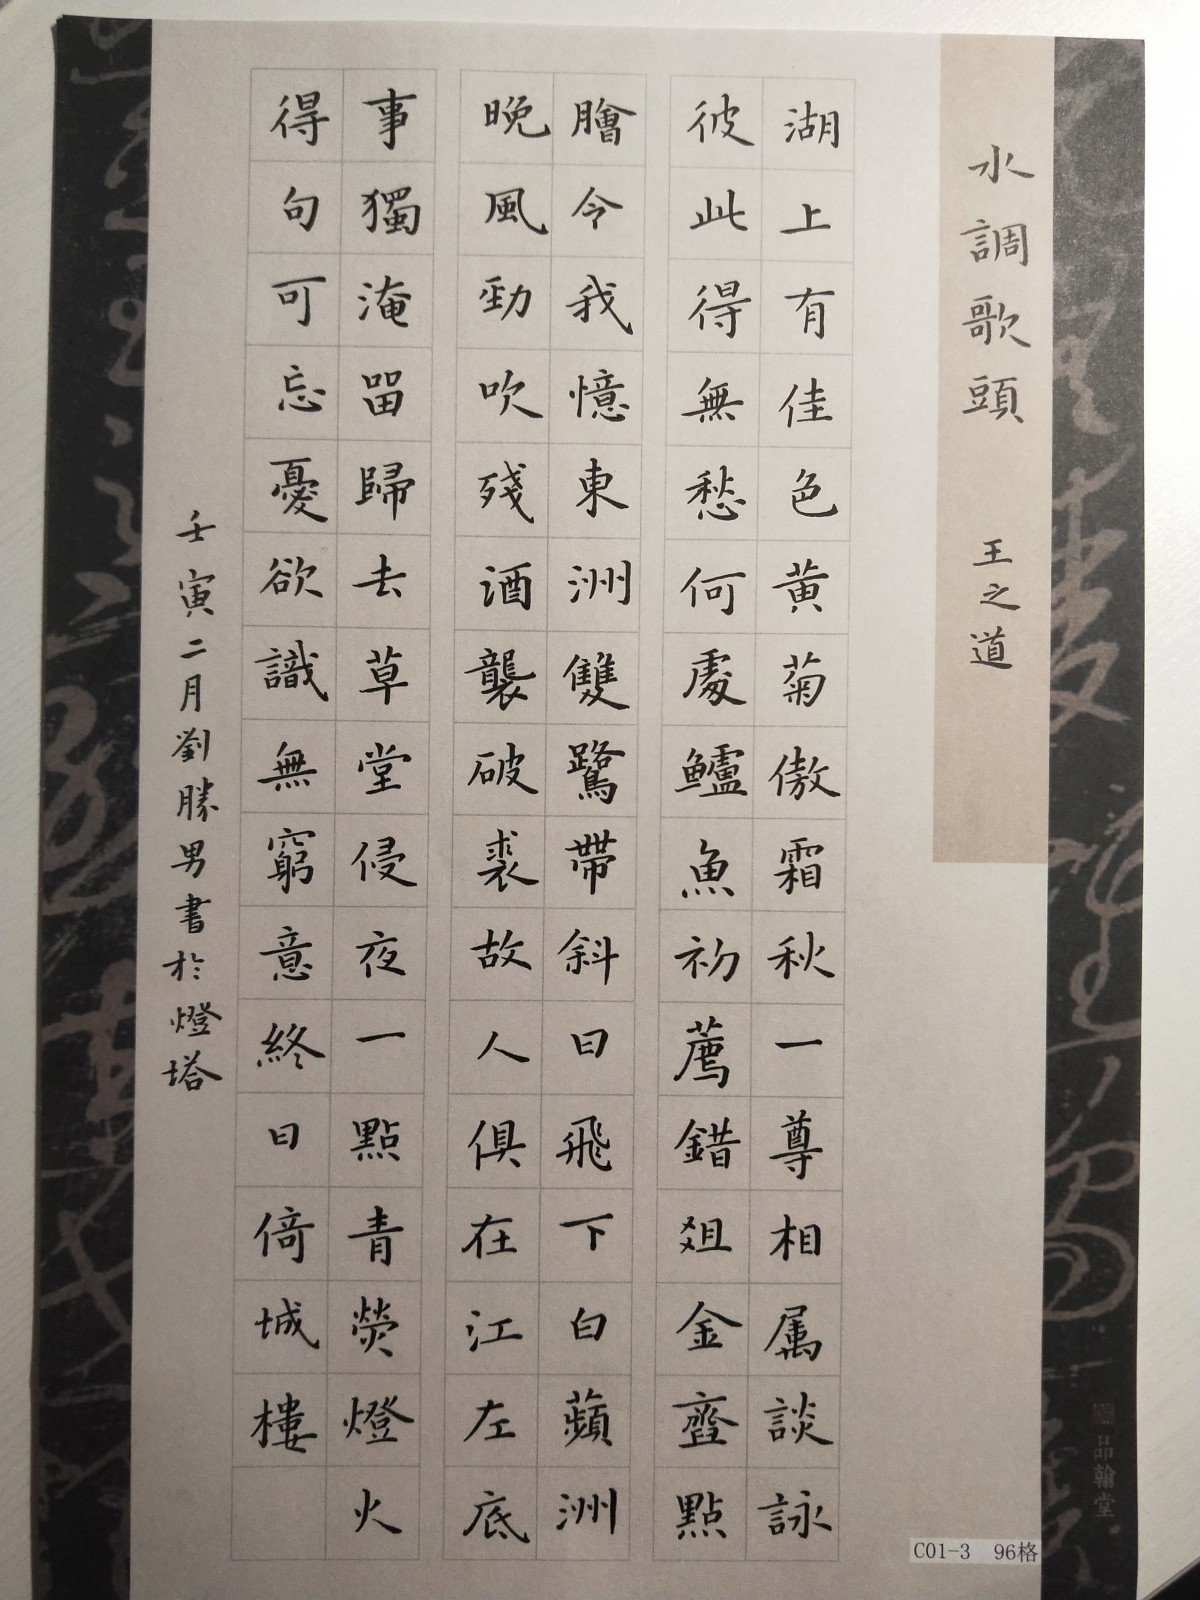 水調歌頭 王之道
湖上有佳色黃菊傲霜秋一尊相属談詠
彼此得無愁何處鱸魚初薦錯俎金虀點
膾令我憶東洲雙鷺帶斜日飛下白蘋洲
晚風勁吹殘酒襲破裘故人俱在江左底
事獨淹留歸去草堂侵夜一點青熒燈火
得句可忘憂欲識無窮意終日倚城樓
壬寅二月劉勝男書於燈塔
品翰堂
C01-3 96格